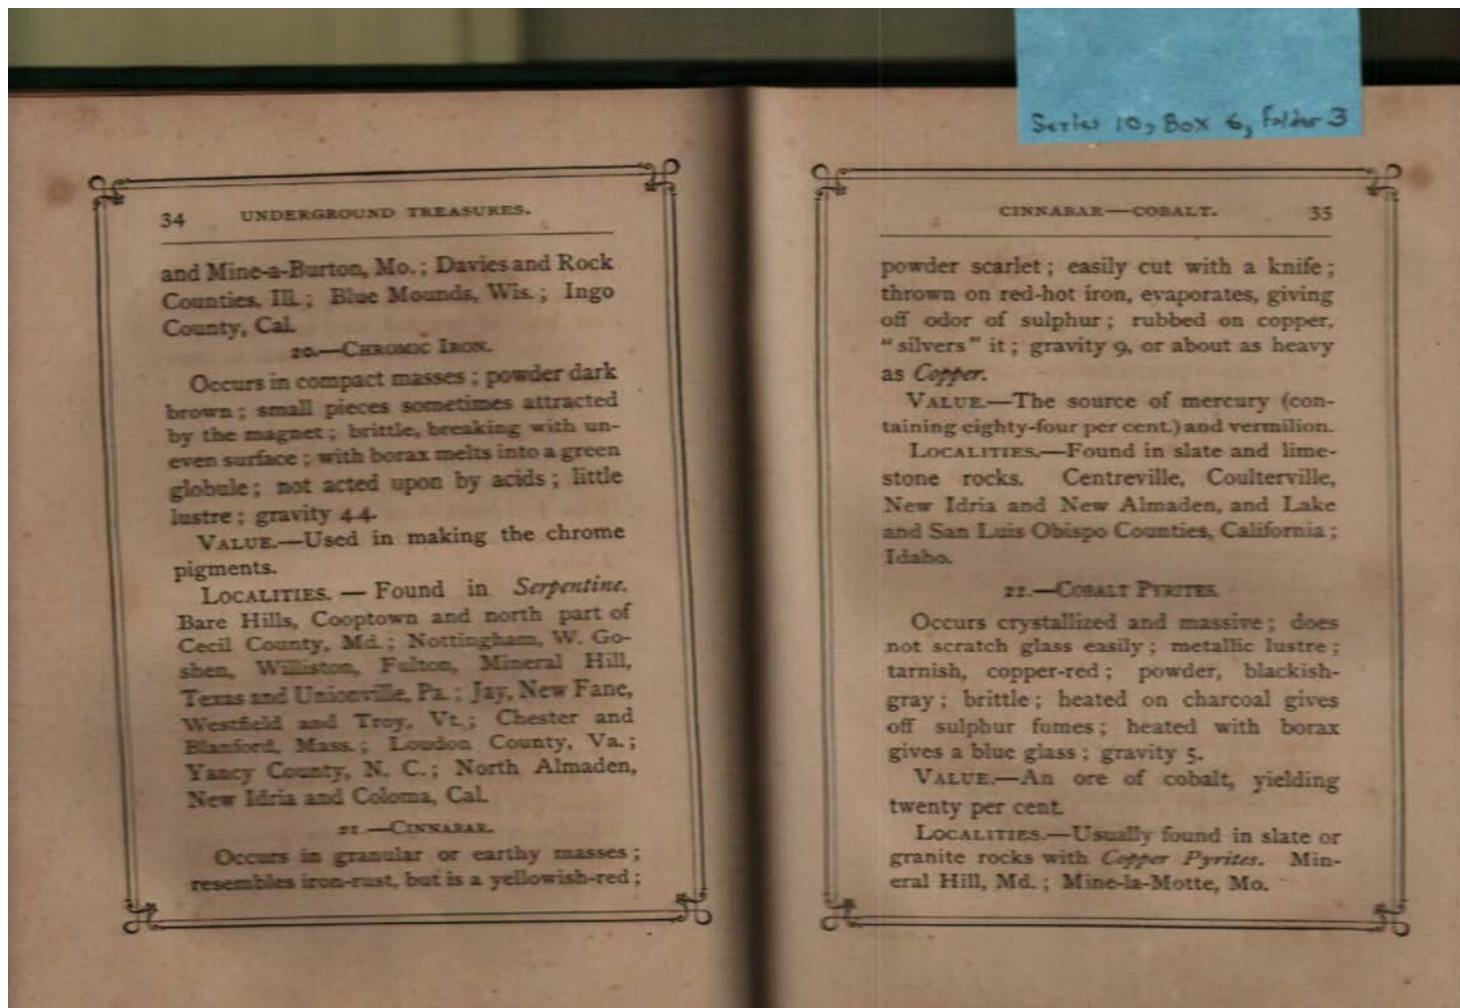 Series 10, Box 6, Folder 3
34 UNDERGROUND TREASURES.
and Mine-a-Burton, Mo.; Davies and Rock
Counties, Ill.; Blue Mounds, Wis.; Ingo
County, Cal.
20.—CHROMIC IRON.
Occurs in compact masses; powder dark
brown; small pieces sometimes attracted
by the magnet; brittle, breaking with un-
even surface; with borax melts into a green
globule; not acted upon by acids; little
lustre; gravity 4.4.
VALUE.—Used in making the chrome
pigments.
LOCALITIES.—Found in Serpentine.
Bare Hills, Cooptown and north part of
Cecil County, Md.; Nottingham, W. Go-
shen, Williston, Fulton, Mineral Hill,
Texas and Unionville, Pa.; Jay, New Fane,
Westfield and Troy, Vt.; Chester and
Blanford, Mass.; Loudon County, Va.;
Yancy County, N. C.; North Almaden,
New Idria and Coloma, Cal.
21.—CINNABAR.
Occurs in granular or earthy masses;
resembles iron-rust, but is a yellowish-red;
CINNABAR—COBALT. 35
powder scarlet; easily cut with a knife;
thrown on red-hot iron, evaporates, giving
off odor of sulphur; rubbed on copper,
"silvers" it; gravity 9, or about as heavy
as Copper.
VALUE.—The source of mercury (con-
taining eighty-four per cent.) and vermilion.
LOCALITIES.—Found in slate and lime-
stone rocks. Centreville, Coulterville,
New Idria and New Almaden, and Lake
and San Luis Obispo Counties, California;
Idaho.
22.—COBALT PYRITES.
Occurs crystallized and massive; does
not scratch glass easily; metallic lustre;
tarnish, copper-red; powder, blackish-
gray; brittle; heated on charcoal gives
off sulphur fumes; heated with borax
gives a blue glass; gravity 5.
VALUE.—An ore of cobalt, yielding
twenty per cent.
LOCALITIES.—Usually found in slate or
granite rocks with Copper Pyrites. Min-
eral Hill, Md.; Mine-la-Motte, Mo.